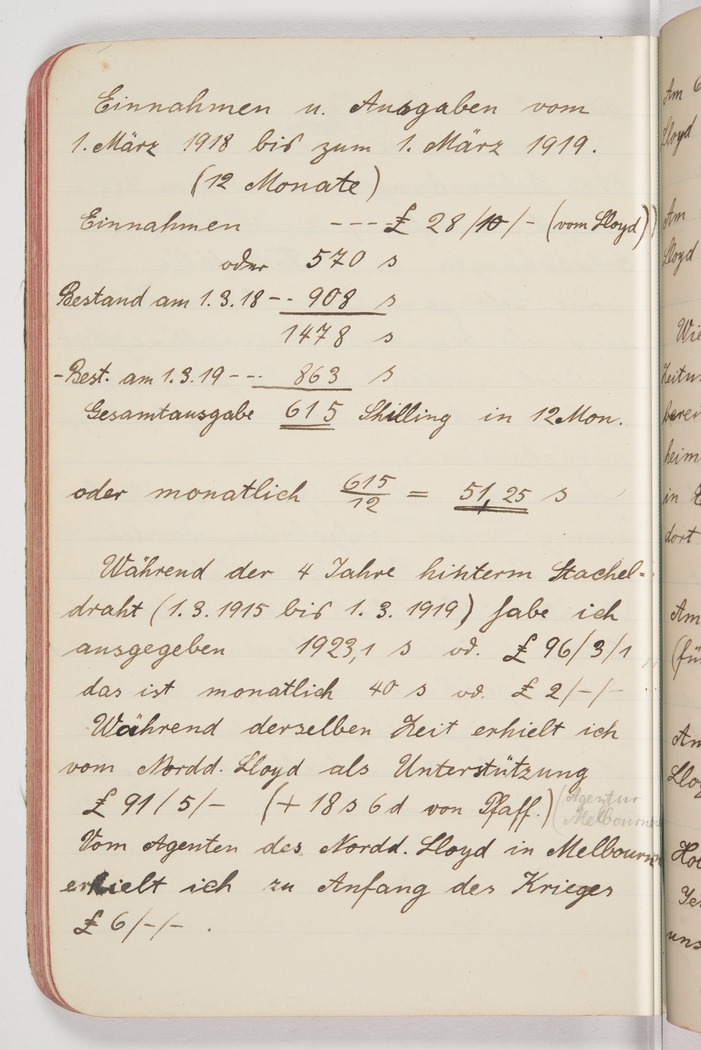 Einnahmen u. Ausgaben vom
1. März 1918 bis zum 1. März 1919.
(12 Monate)
Einnahmen ---- £ 28/10/- (vom Lloyd)
oder 570 s
Bestand am 1.3.18 -- 908 s
1478 s
- Best. am 1.3.19 --- 863 s
Gesamtausgabe 615 Shilling in 12 Mon.
oder monatlich 615/12 = 51,25 s
Während der 4 Jahre hinterm Stachel-
draht (1.3.1915 bis 1.3.1919) habe ich
ausgegeben 1923,1 s od. £ 96/3/1
das ist monatlich 40 s od. £ 2/-/-
Während derselben Zeit erhielt ich
vom Nordd. Lloyd als Unterstützung
£ 91/5/- (+ 18 s 6 d von Pfaff.) (Agentur
Melbourne
Vom Agenten des Nordd. Lloyd in Melbourne
erhielt ich zu Anfang des Krieges
£ 6/-/- .
Am 6
Lloyd
Am
Lloyd
Wie
Zeitu
heim
in
dort
Am
(für
Am
Lloy
uns